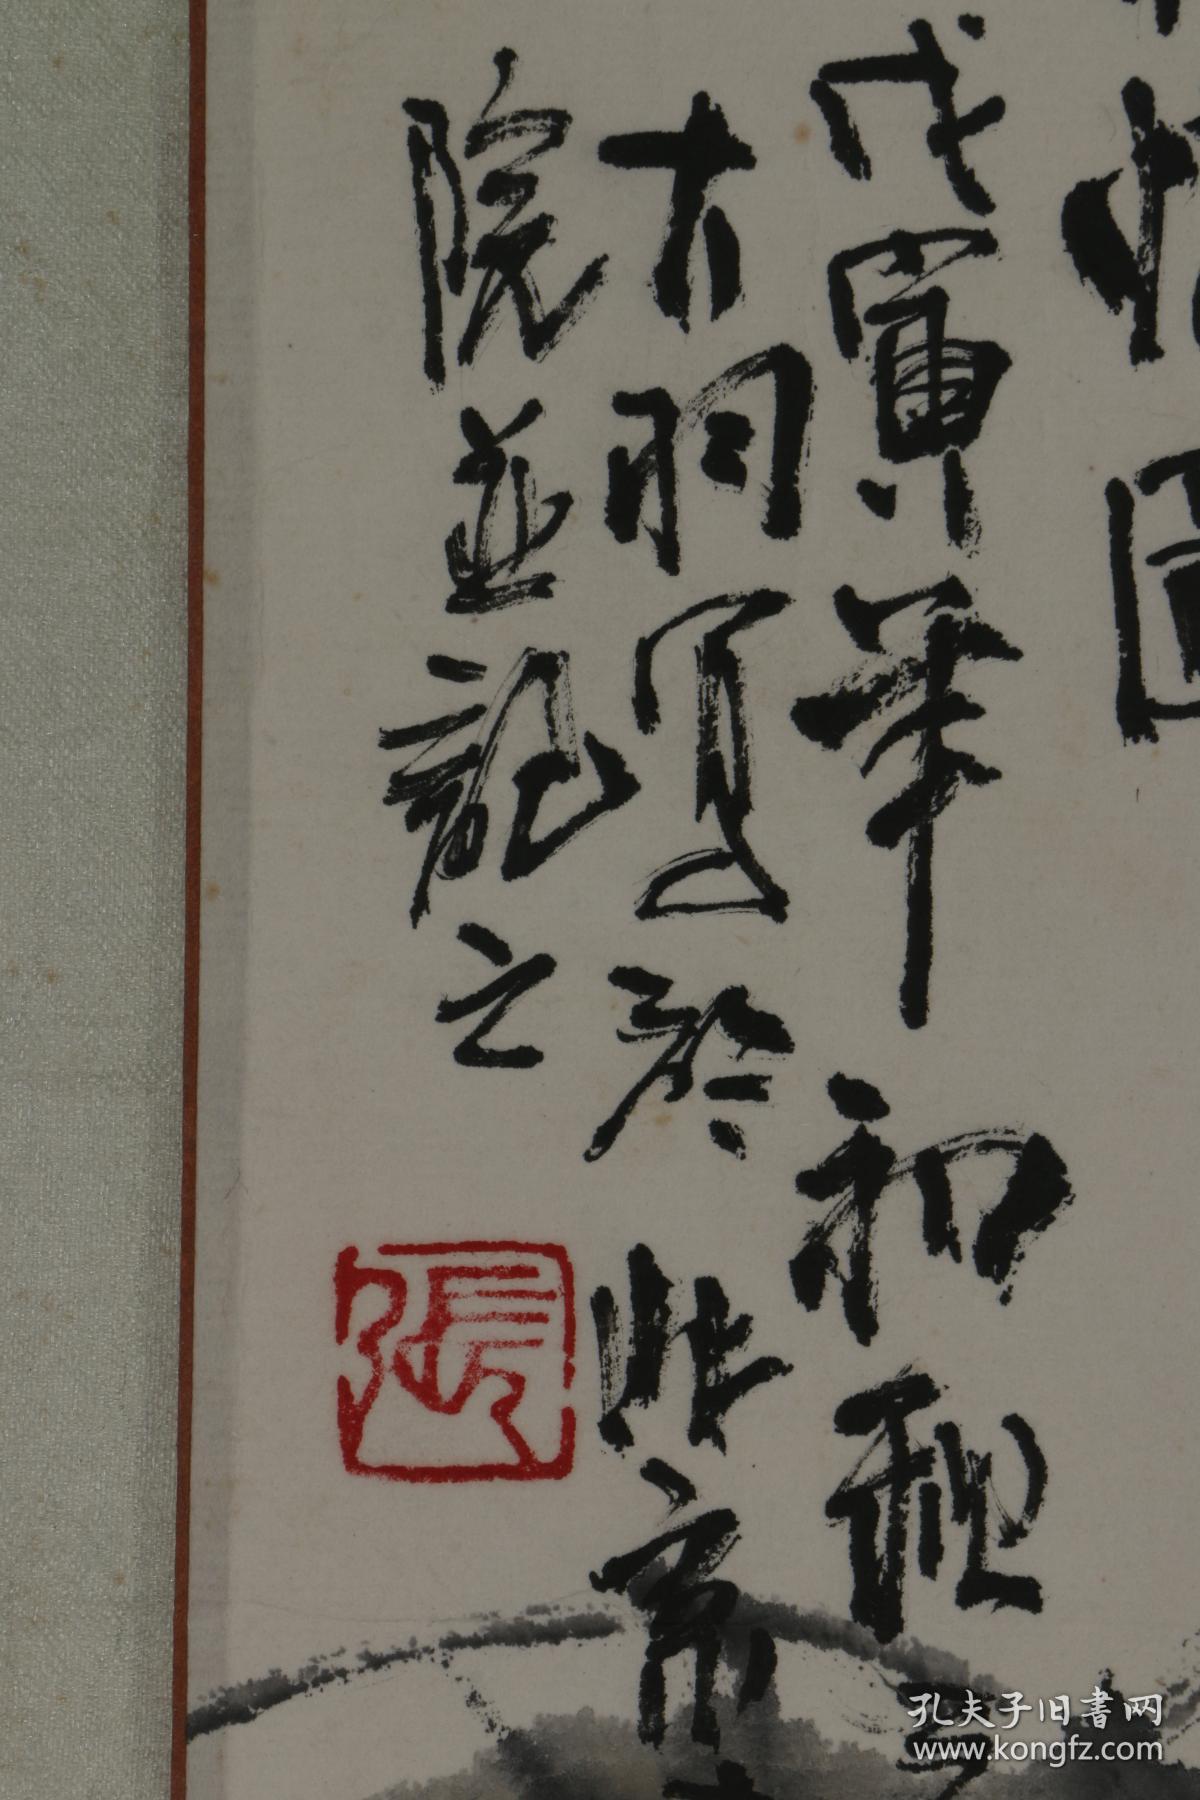 情圖
戊寅年初秋
大羽寫於北京
院並記之
張
孔夫子旧書网
www.kongfz.com